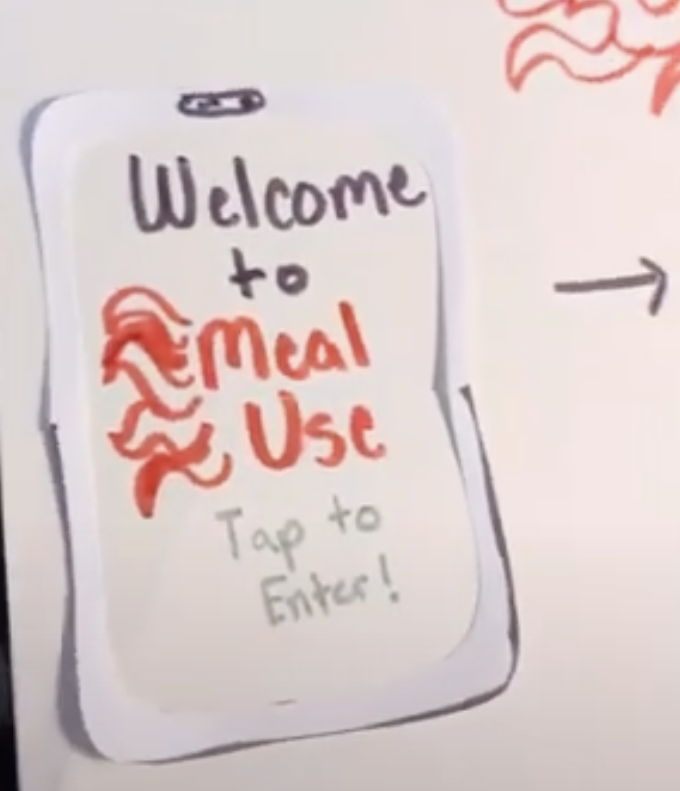 Welcome
to
Meal
Use
Tap to
Enter!